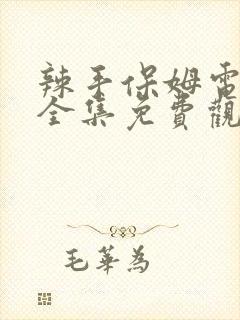 辣手保姆電
全集免費觀
毛華為